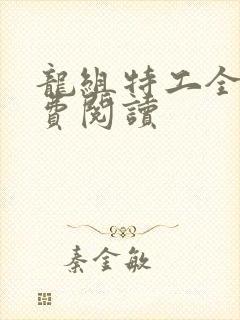 龍組特工全
費閱讀
秦金敏